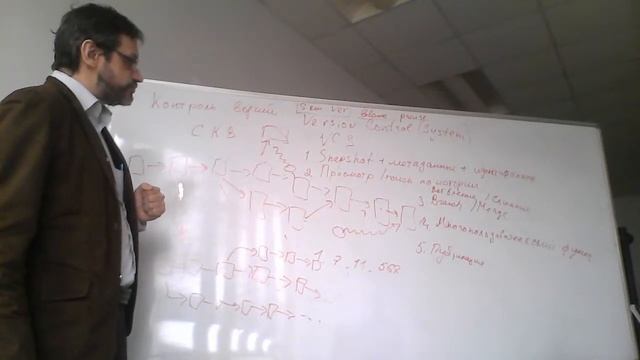 Контроль версий Sem Ver. blame
Version Control (System)
СКВ VCS
1 Snapshot + метаданные +
2 Просмотр / поиск по истории
Ветвление / Слияние
3 Branch / Merge
4. Многопользовательский
5. Публикация
1.7.11.568